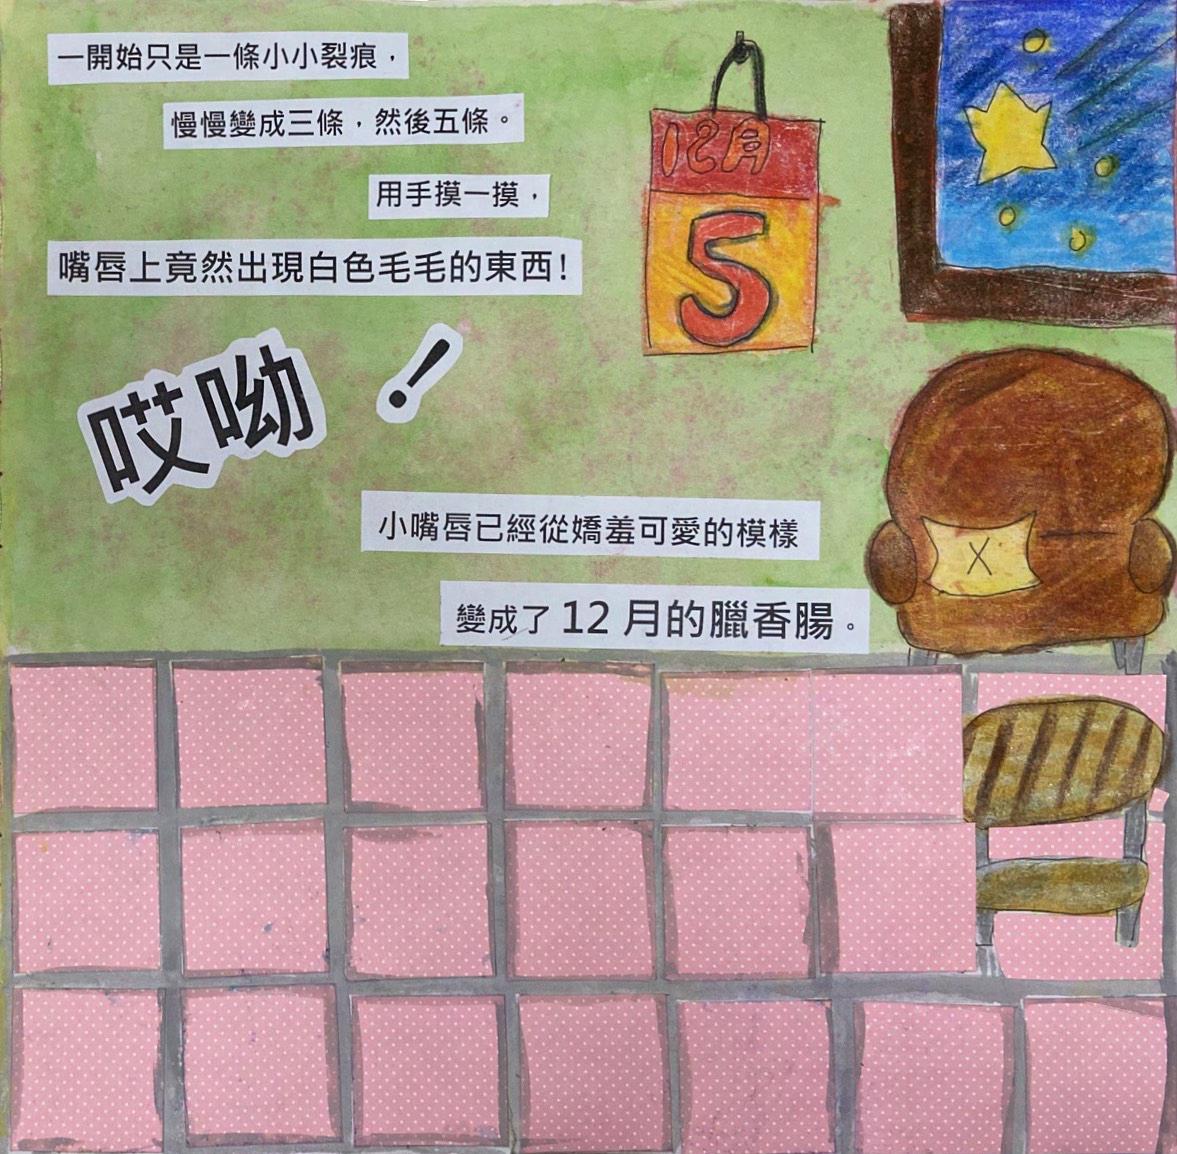 一開始只是一條小小裂痕，
慢慢變成三條，然後五條。
用手摸一摸，
嘴唇上竟然出現白色毛毛的東西！
哎呦！
小嘴唇已經從嬌羞可愛的模樣
變成了 12 月的臘香腸。
12月
5
X